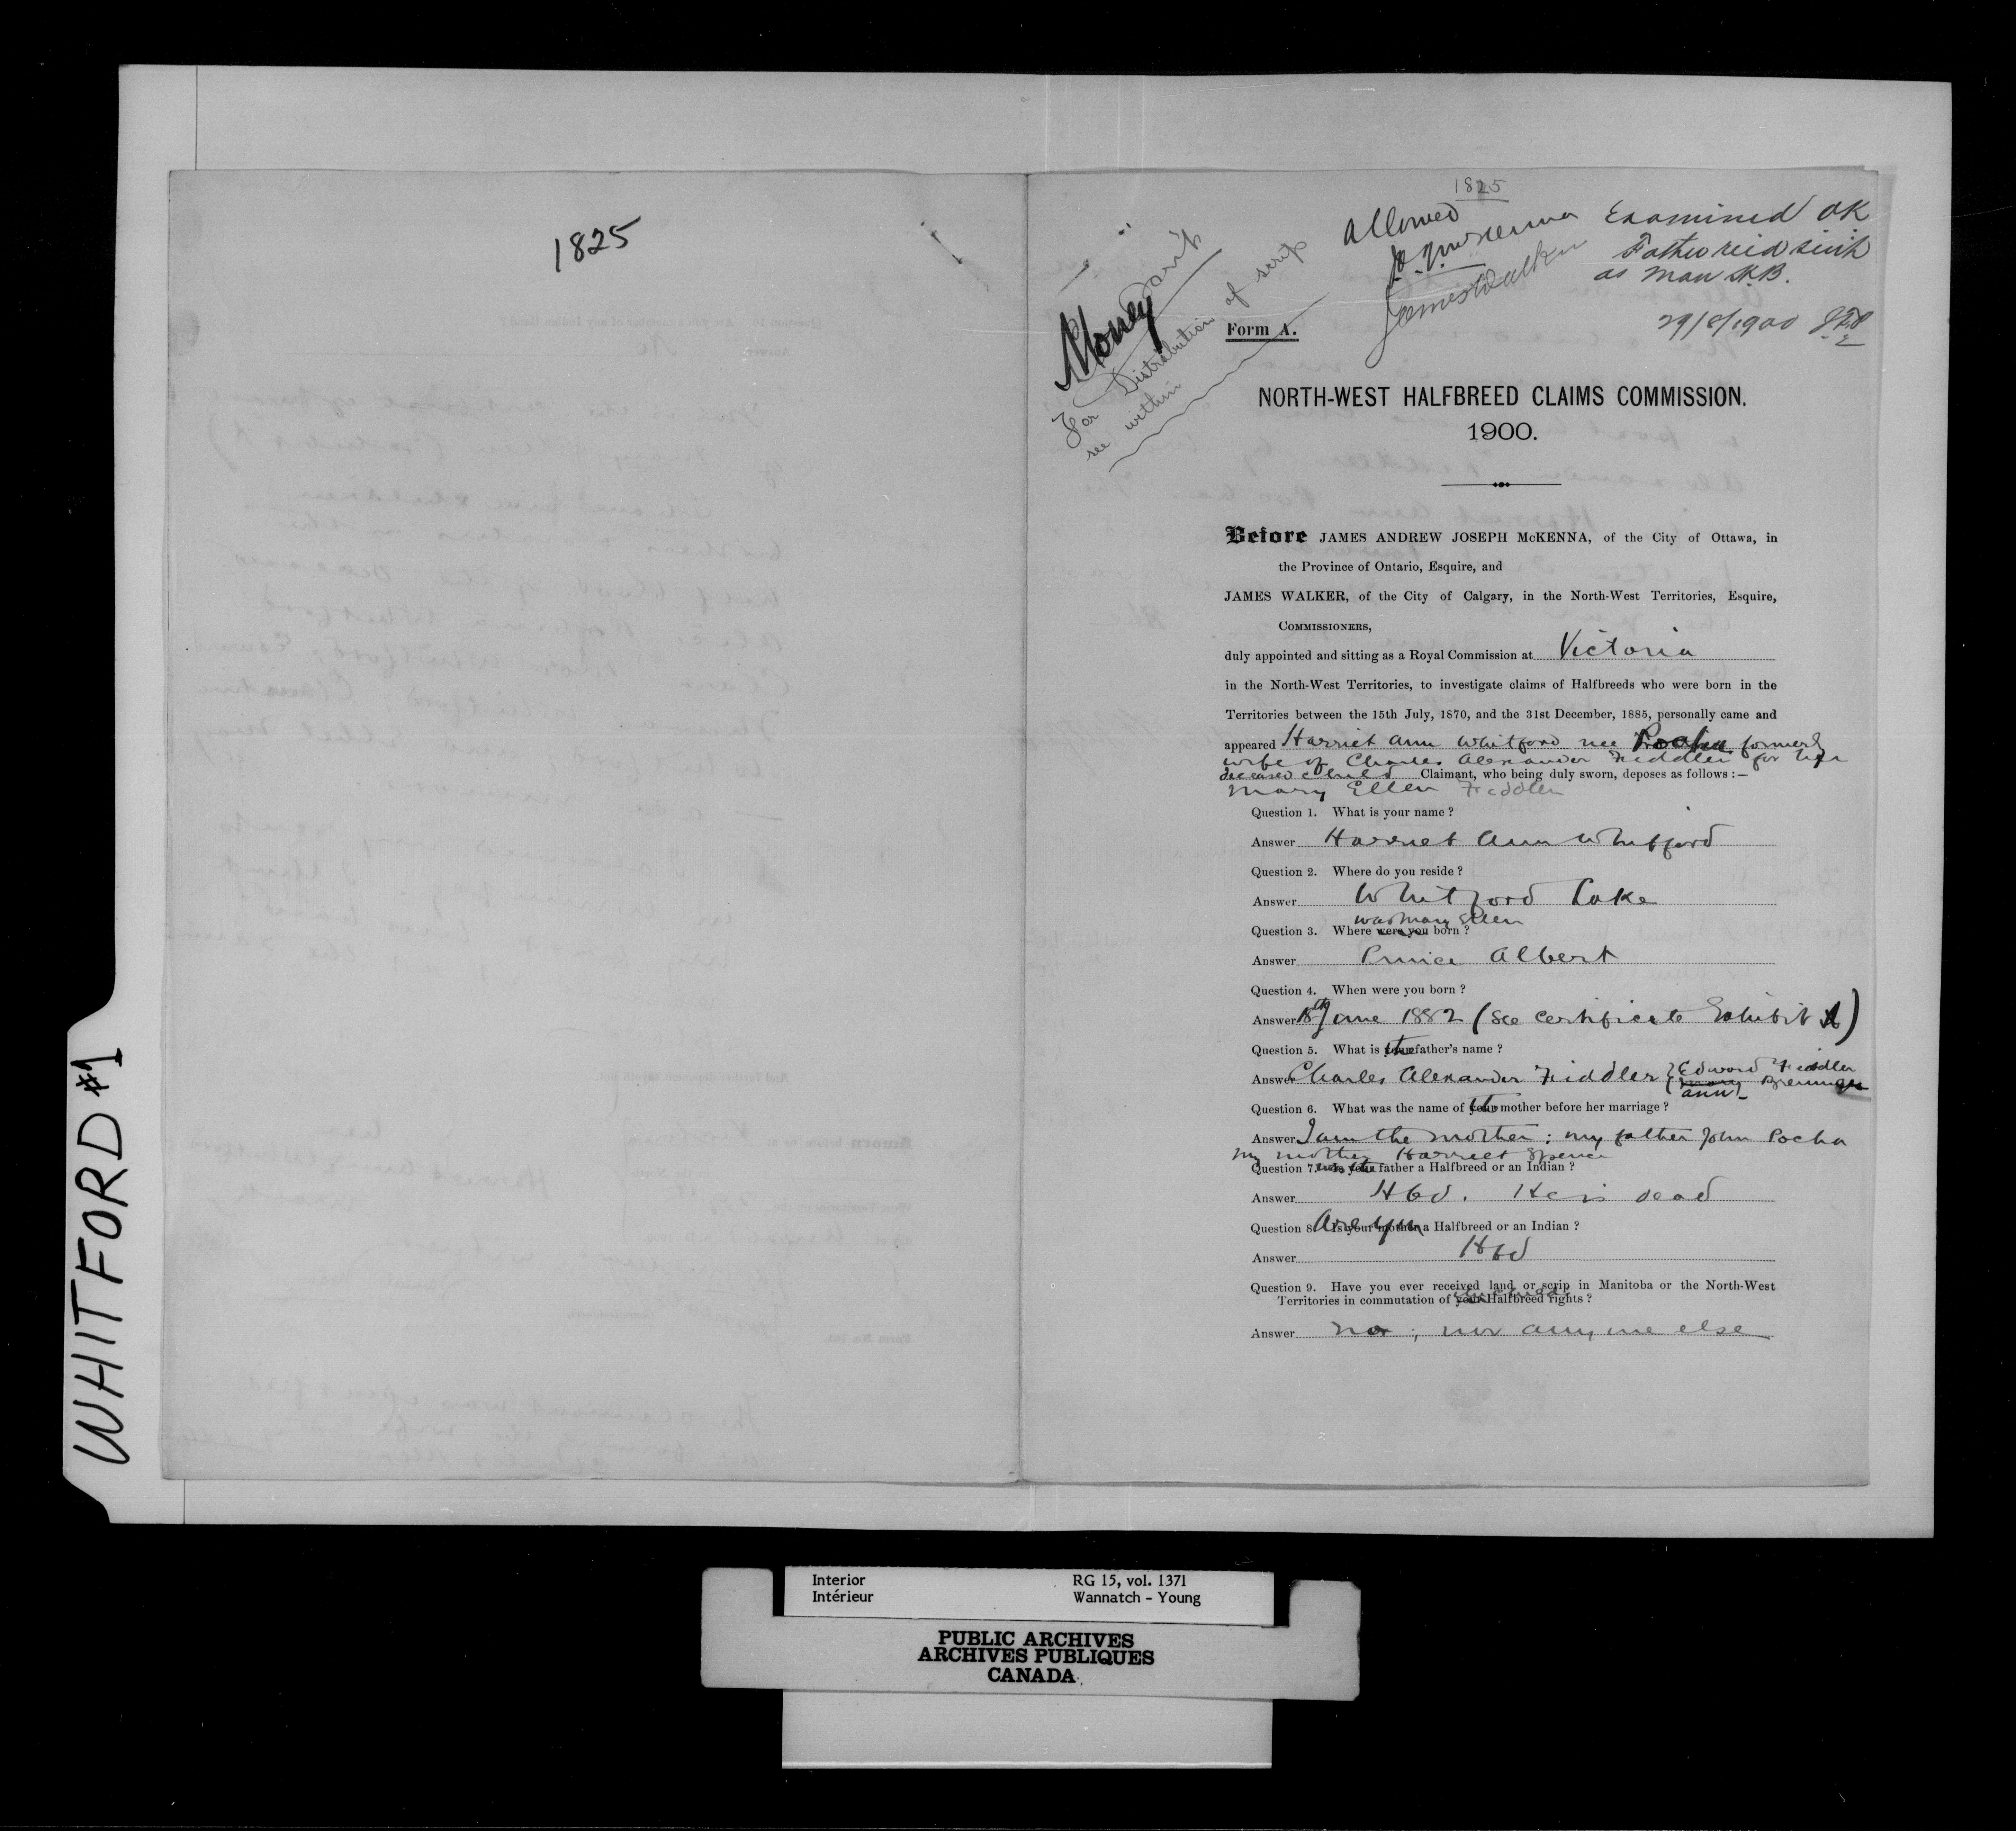 1825
WHITFORD #1
1825
Allowed
J.A.J. McKenna
James Walker
Examined OK
Father recd scrip
as Man H.B.
29/8/1900
Money Scrip
For Distribution of scrip
see within
Form A.
NORTH-WEST HALFBREED CLAIMS COMMISSION.
1900.
Before JAMES ANDREW JOSEPH McKENNA, of the City of Ottawa, in
the Province of Ontario, Esquire, and
JAMES WALKER, of the City of Calgary, in the North-West Territories, Esquire,
COMMISSIONERS,
duly appointed and sitting as a Royal Commission at Victoria
in the North-West Territories, to investigate claims of Halfbreeds who were born in the
Territories between the 15th July, 1870, and the 31st December, 1885, personally came and
appeared Harriet Ann Whitford nee Pocha formerly
wife of Charles Alexander Fiddler for her
deceased child Claimant, who being duly sworn, deposes as follows :—
Mary Ellen Fiddler
Question 1. What is your name ?
Answer Harriet Ann Whitford
Question 2. Where do you reside ?
Answer Whitford Lake
was Mary Ellen
Question 3. Where were you born ?
Answer Prince Albert
Question 4. When were you born ?
Answer 18th June 1882 (See certificate Exhibit A)
Question 5. What is the father's name ?
Answer Charles Alexander Fiddler { Edward Fiddler
Mary
Ann
Question 6. What was the name of your mother before her marriage ?
Answer I am the mother : my father John Pocha
my mother Harriet Spence
Question 7. Was your father a Halfbreed or an Indian ?
Answer Hbd. He is dead
Question 8. Are you Is your mother a Halfbreed or an Indian ?
Answer Hbd
Question 9. Have you ever received land or scrip in Manitoba or the North-West
Territories in commutation of your Halfbreed rights ?
Answer no ; nor any one else
Interior RG 15, vol. 1371
Intérieur Wannatch - Young
PUBLIC ARCHIVES
ARCHIVES PUBLIQUES
CANADA